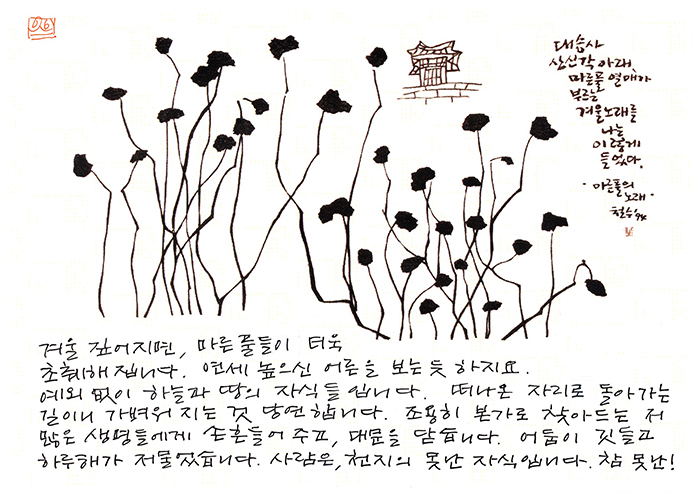 대승사
산신각 아래,
마른풀 열매가
부르는
겨울노래를
나는
이렇게
들었다.
· 마른풀의
노래 ·
철수
겨울 깊어지면, 마른풀들이 더욱
초췌해집니다. 연세 높으신 어른을 보는듯 하지요.
예외 없이 하늘과 땅의 자식들입니다. 떠나온 자리로 돌아가는
길이니 가벼워 지는 것 당연합니다. 조용히 본가로 찾아드는 저
많은 생명들에게 손흔들어 주고, 대문을 닫습니다. 어둠이 짓들고
하루해가 저물었습니다. 사람은, 천지의 못난 자식입니다. 참 못난!